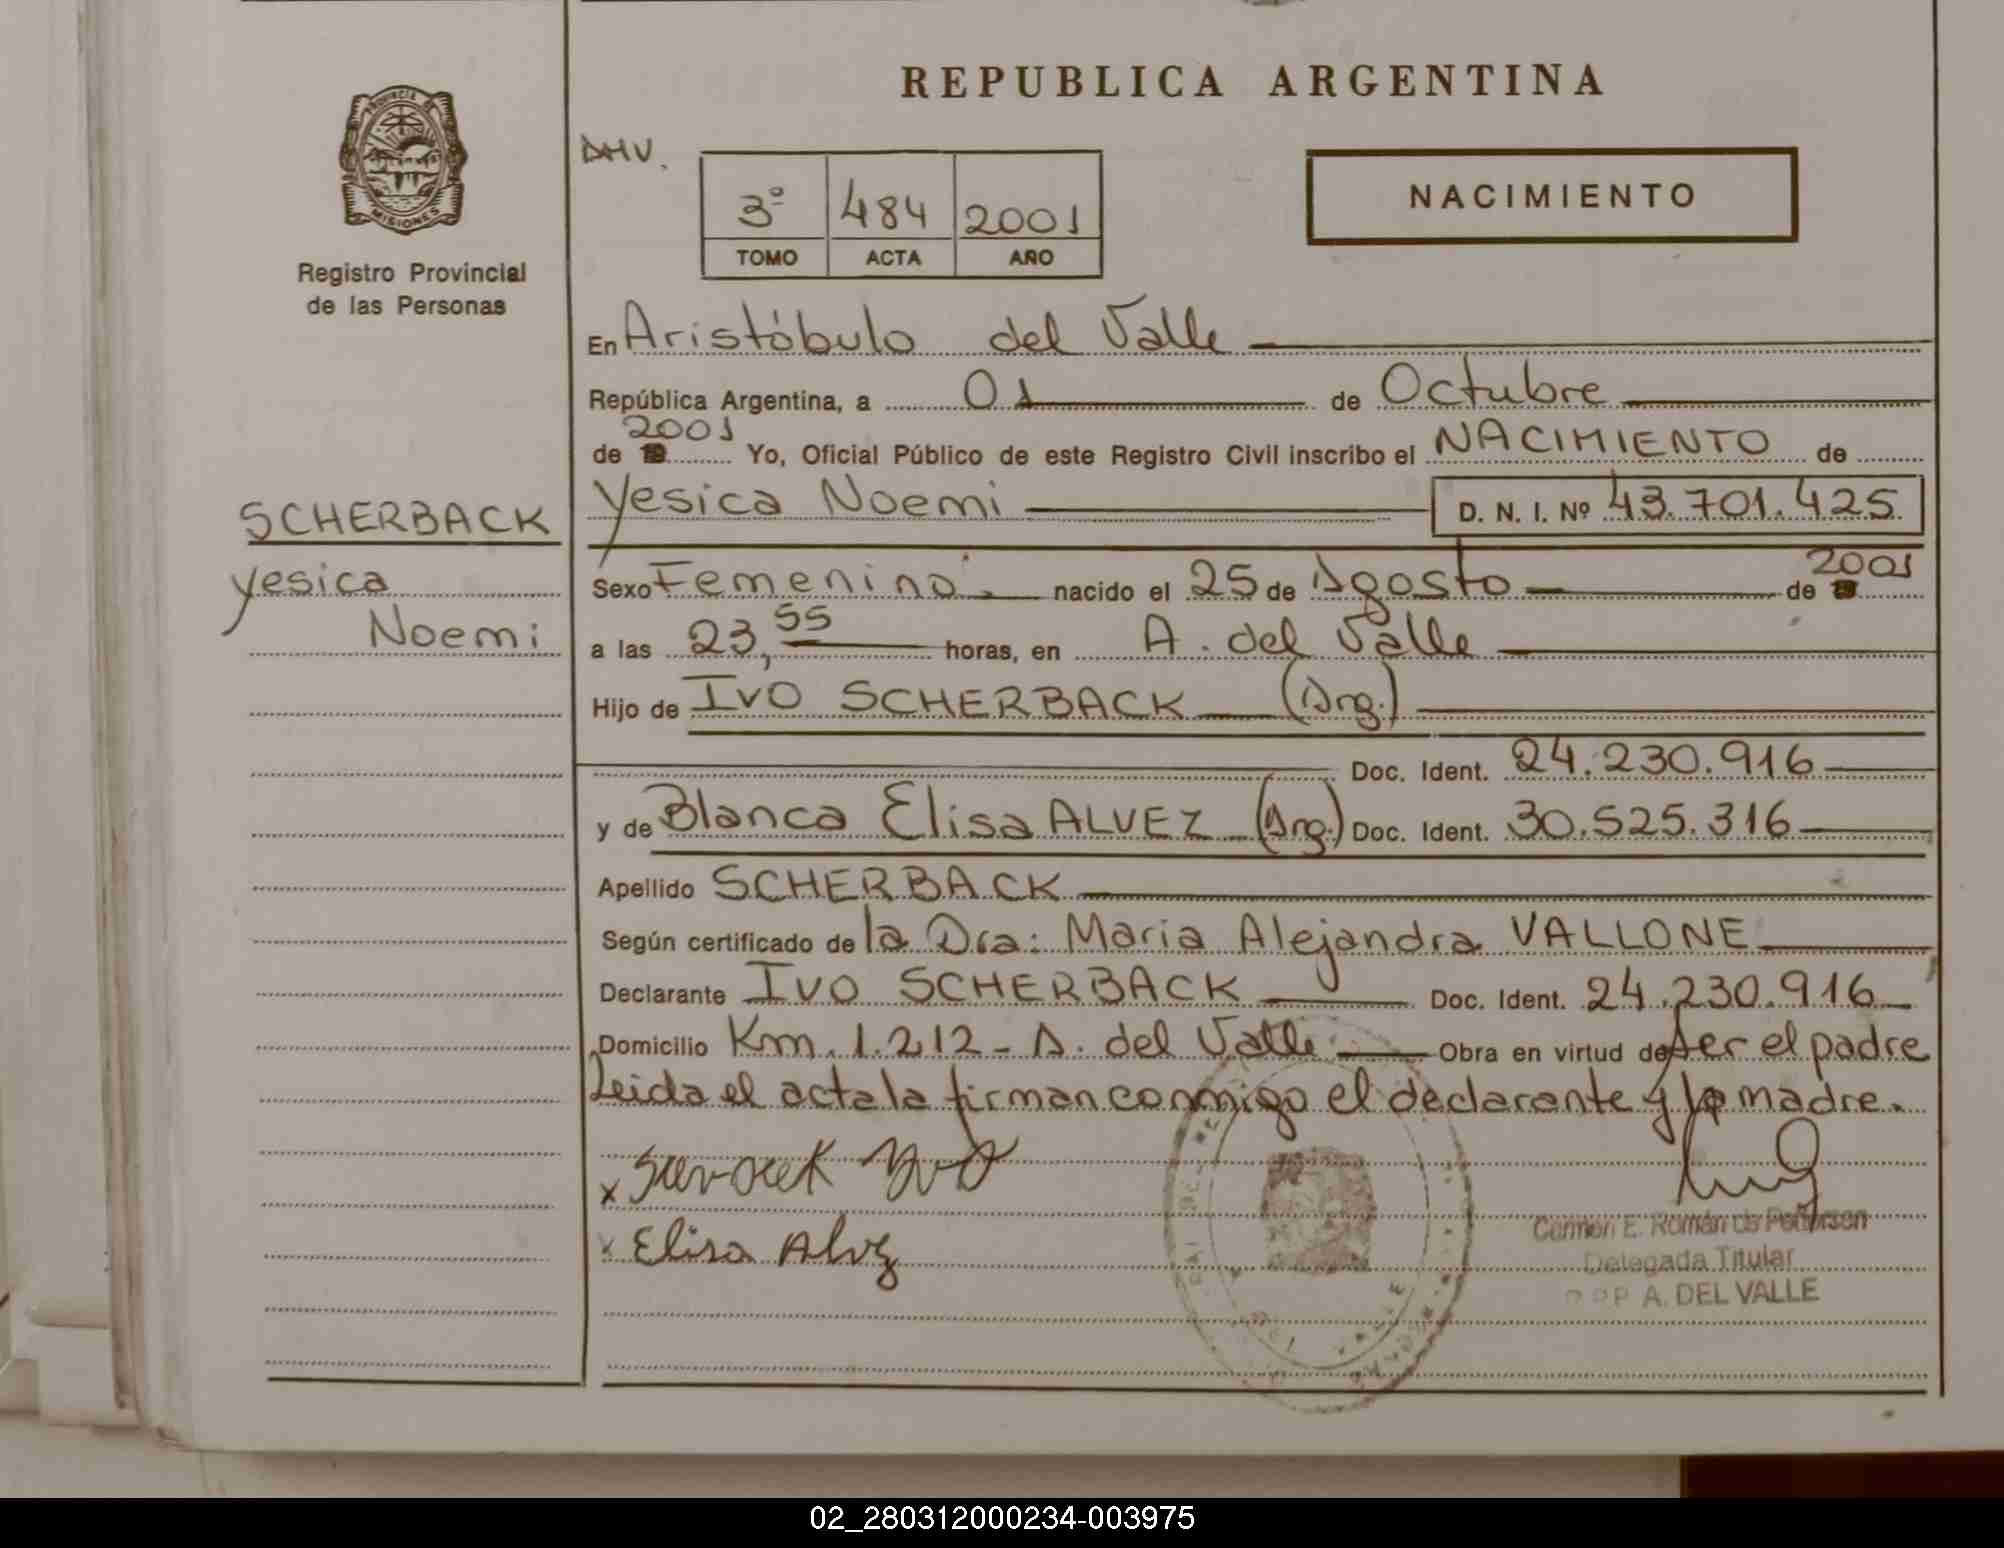 REPUBLICA ARGENTINA
PROVINCIA DE
MISIONES
Registro Provincial
de las Personas
DHV.
3º 484 2001
TOMO ACTA AÑO
NACIMIENTO
En Aristóbulo del Valle
República Argentina, a 01 de Octubre
de 2001 Yo, Oficial Público de este Registro Civil inscribo el NACIMIENTO de
Yesica Noemi D. N. I. Nº 43.701.425
SCHERBACK
Yesica
Noemi
Sexo Femenino. nacido el 25 de Agosto de 2001
a las 23,55 horas, en A. del Valle
Hijo de IVO SCHERBACK (Arg.)
Doc. Ident. 24.230.916
y de Blanca Elisa ALVEZ (Arg.) Doc. Ident. 30.525.316
Apellido SCHERBACK
Según certificado de la Dra: Maria Alejandra VALLONE
Declarante IVO SCHERBACK Doc. Ident. 24.230.916
Domicilio Km. 1.212 - A. del Valle Obra en virtud de ser el padre
Leida el acta la firman conmigo el declarante y la madre.
x
x Elisa Alvez
Carmen E. Román de Pedersen
Delegada Titular
A. DEL VALLE
02_280312000234-003975